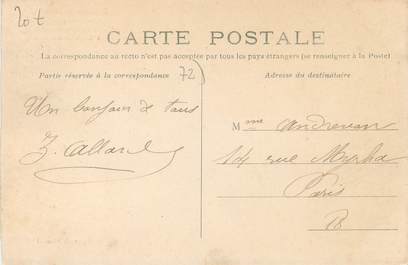 20 t
CARTE POSTALE
La correspondance au recto n'est pas acceptée par tous les pays étrangers (se renseigner à la Poste)
Partie réservée à la correspondance
72
Adresse du destinataire
Un bonjour à tous
Z. Allard
Mme Andrevan
14 rue Myrha
Paris